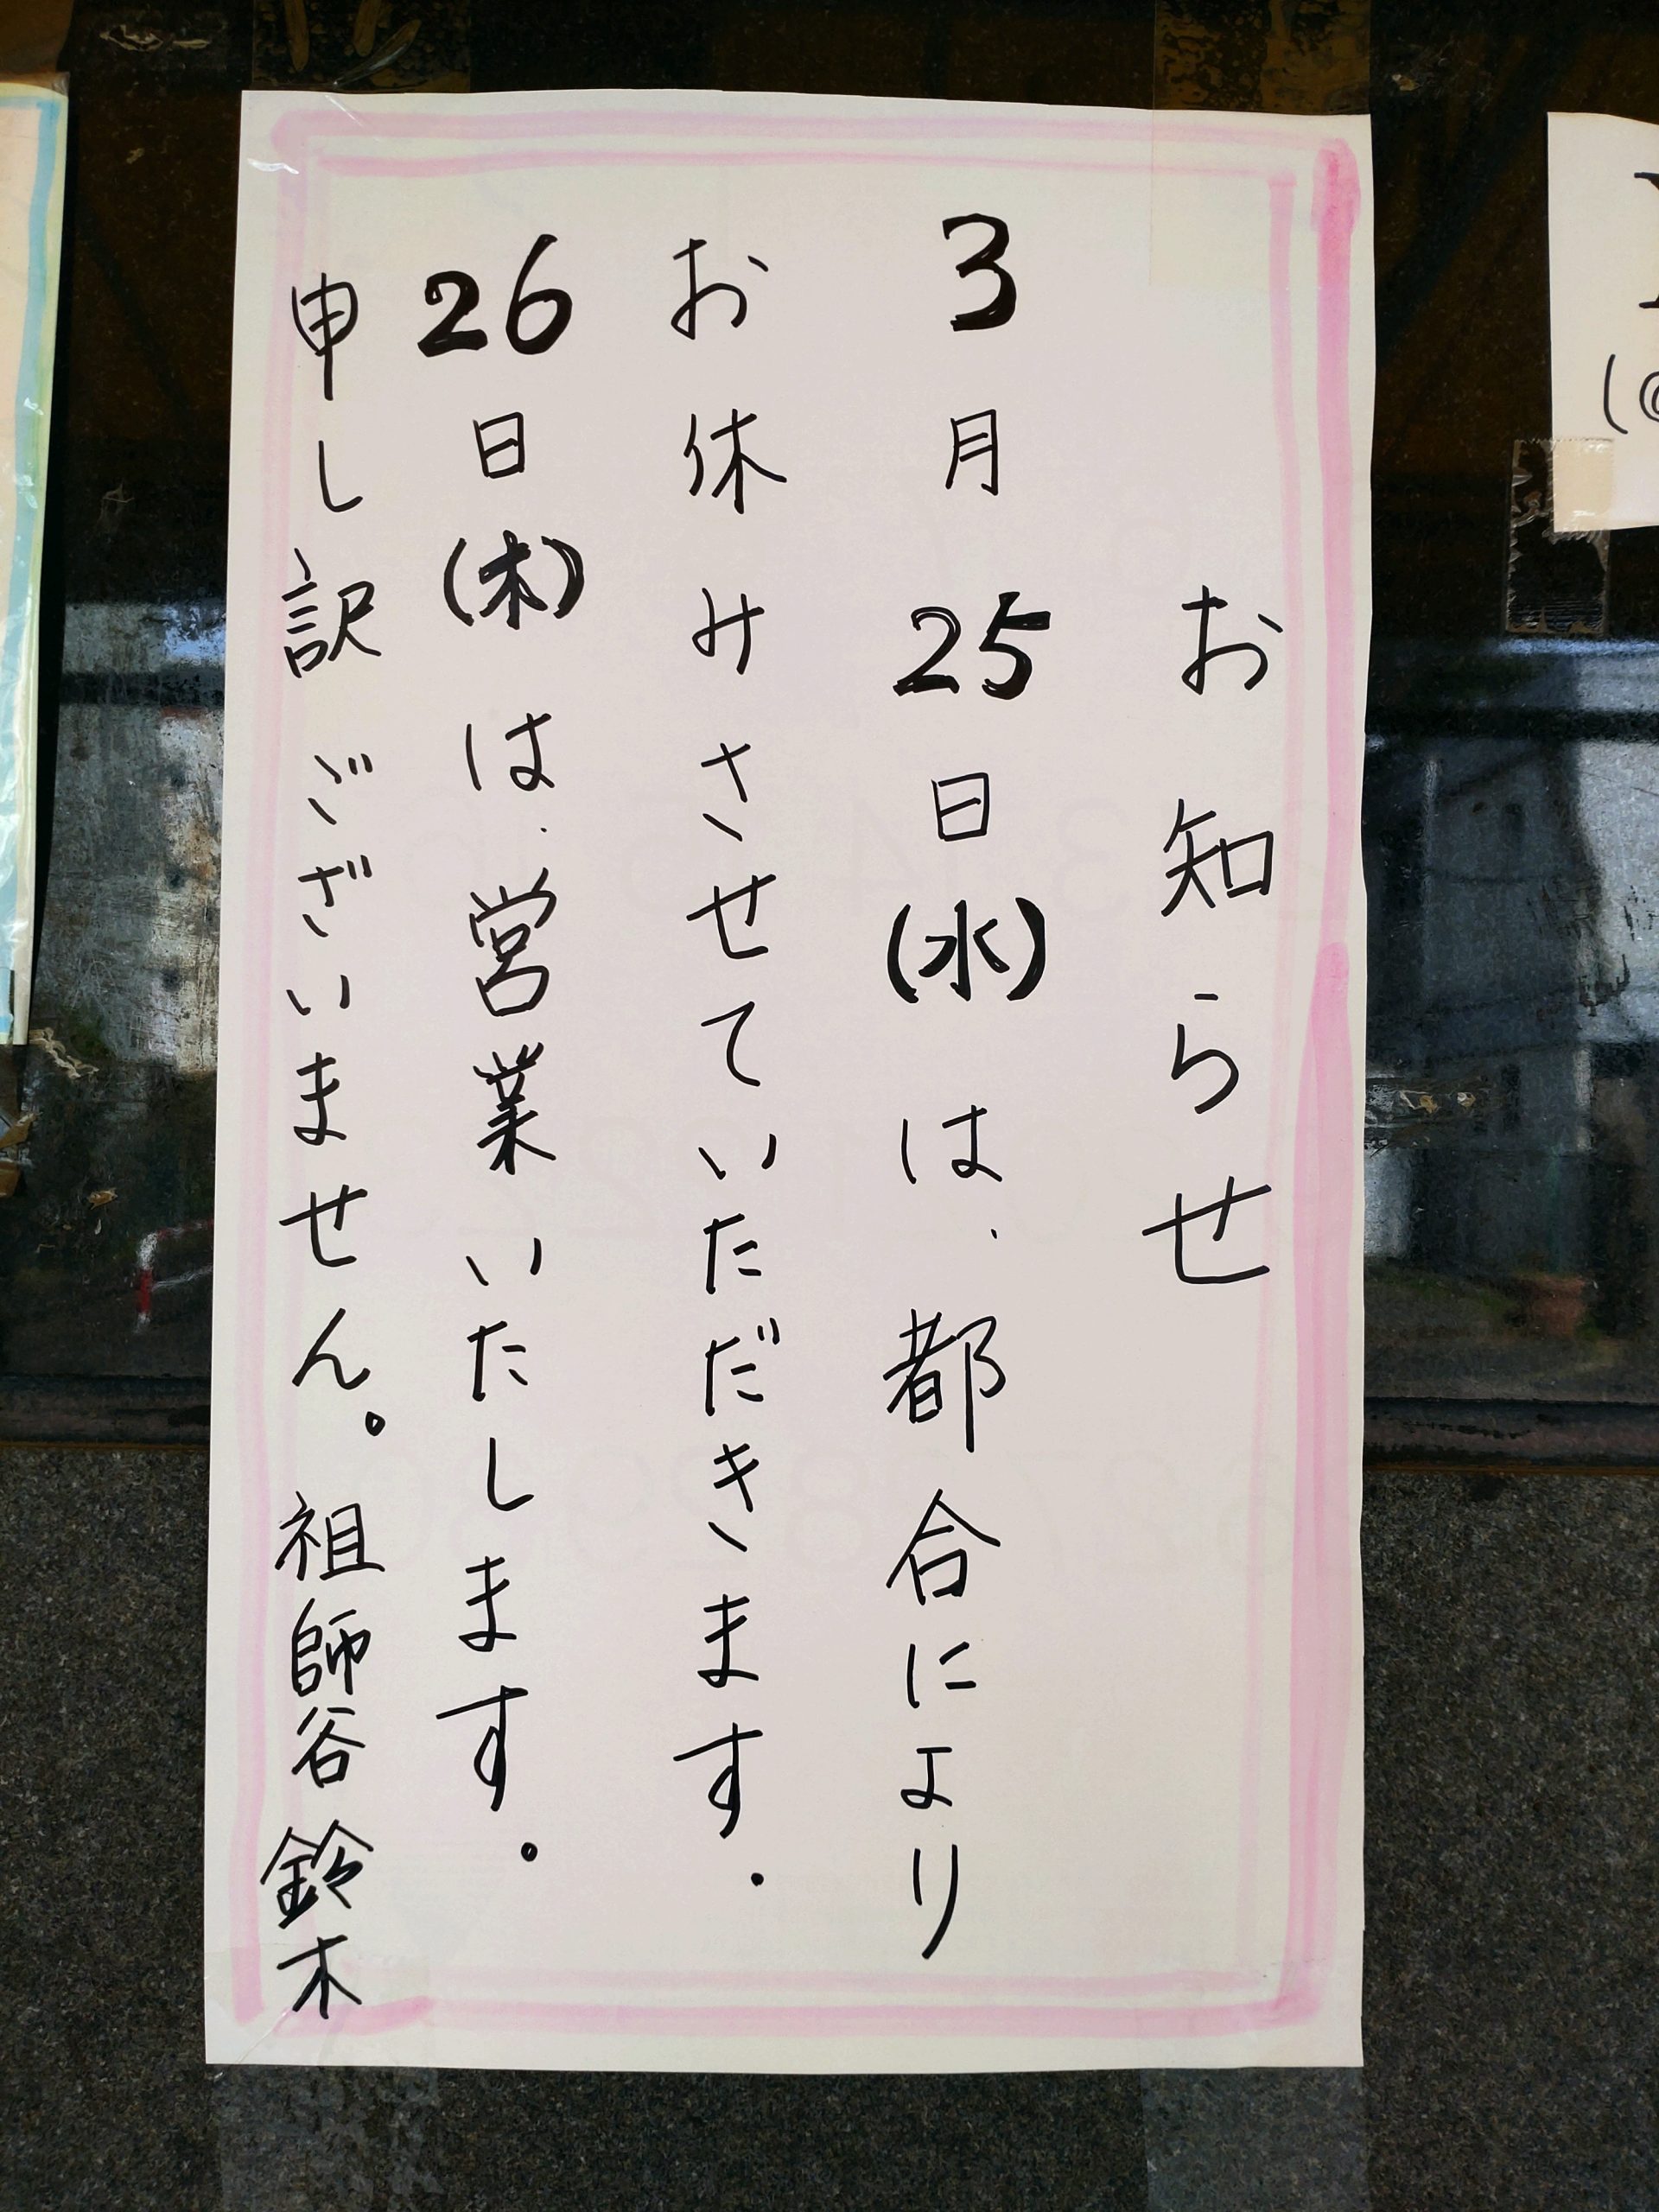 お知らせ
3月25日(水)は、都合により
お休みさせていただきます。
26日(木)は、営業いたします。
申し訳ございません。祖師谷鈴木